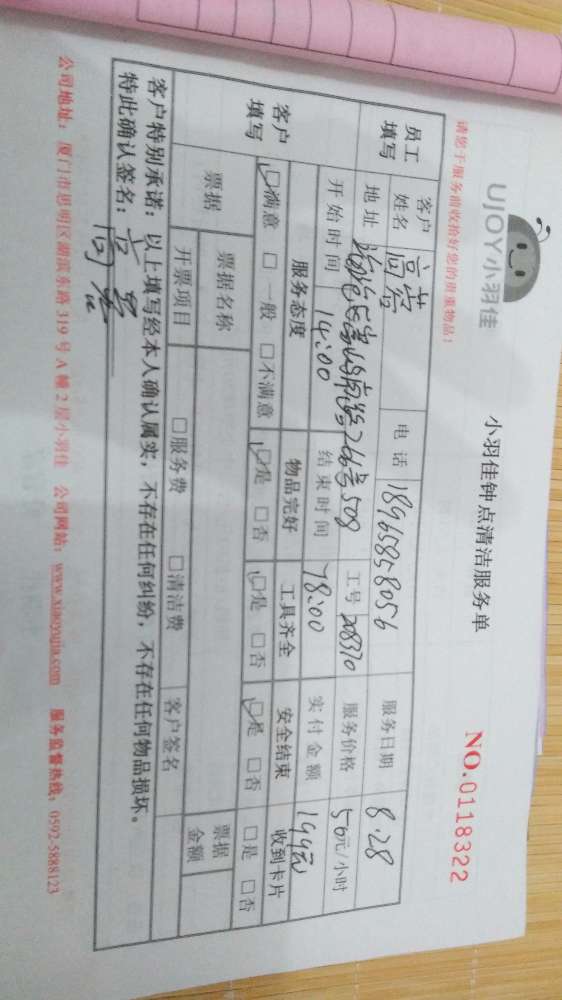 UJOY小羽佳
小羽佳钟点清洁服务单
NO.0118322
请您于服务前收拾好您的贵重物品！
员工填写
客户姓名 电话 18965858056 服务日期 8.28
地址 266号508 工号 208370 服务价格 56元/小时
开始时间 14:00 结束时间 18:00 实付金额
客户填写
服务态度 物品完好 工具齐全 安全结束 收到卡片
□满意 □一般 □不满意 □是 □否 □是 □否 □是 □否 □是 □否
票据 票据名称 票据金额
开票项目 □服务费 □清洁费 客户签名
客户特别承诺：以上填写经本人确认属实，不存在任何纠纷，不存在任何物品损坏。
特此确认签名：
公司地址：厦门市思明区湖滨东路319号A幢2层小羽佳 公司网站：www.xiaoyujia.com 服务监督热线：0592-5888123